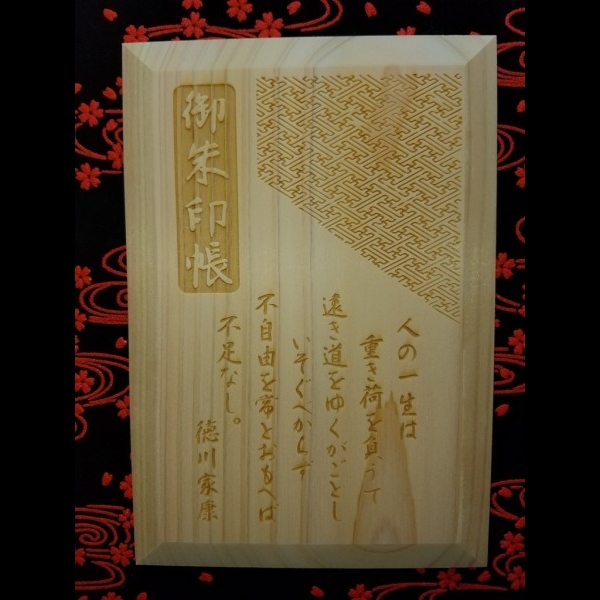 御朱印帳
人の一生は
重き荷を負うて
遠き道をゆくがごとし
いそぐべからず
不自由を常とおもへば
不足なし。
徳川家康